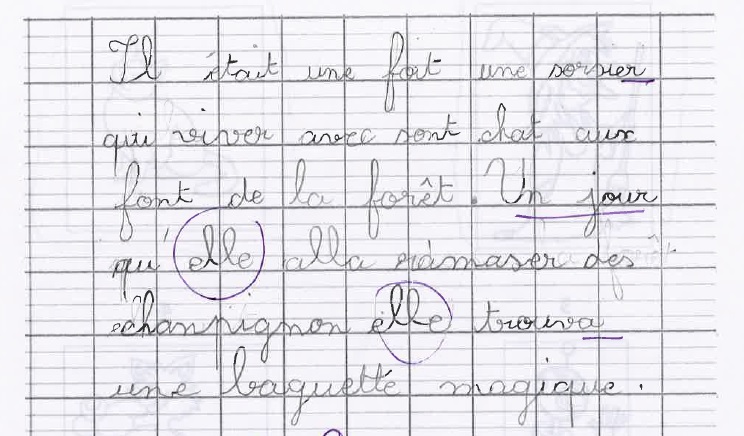 Il était une foit une sorsier
qui viver avec sont chat aux
font de la forêt. Un jour
qu'elle alla ramaser des
échanpignon elle trouva
une baguette magique.